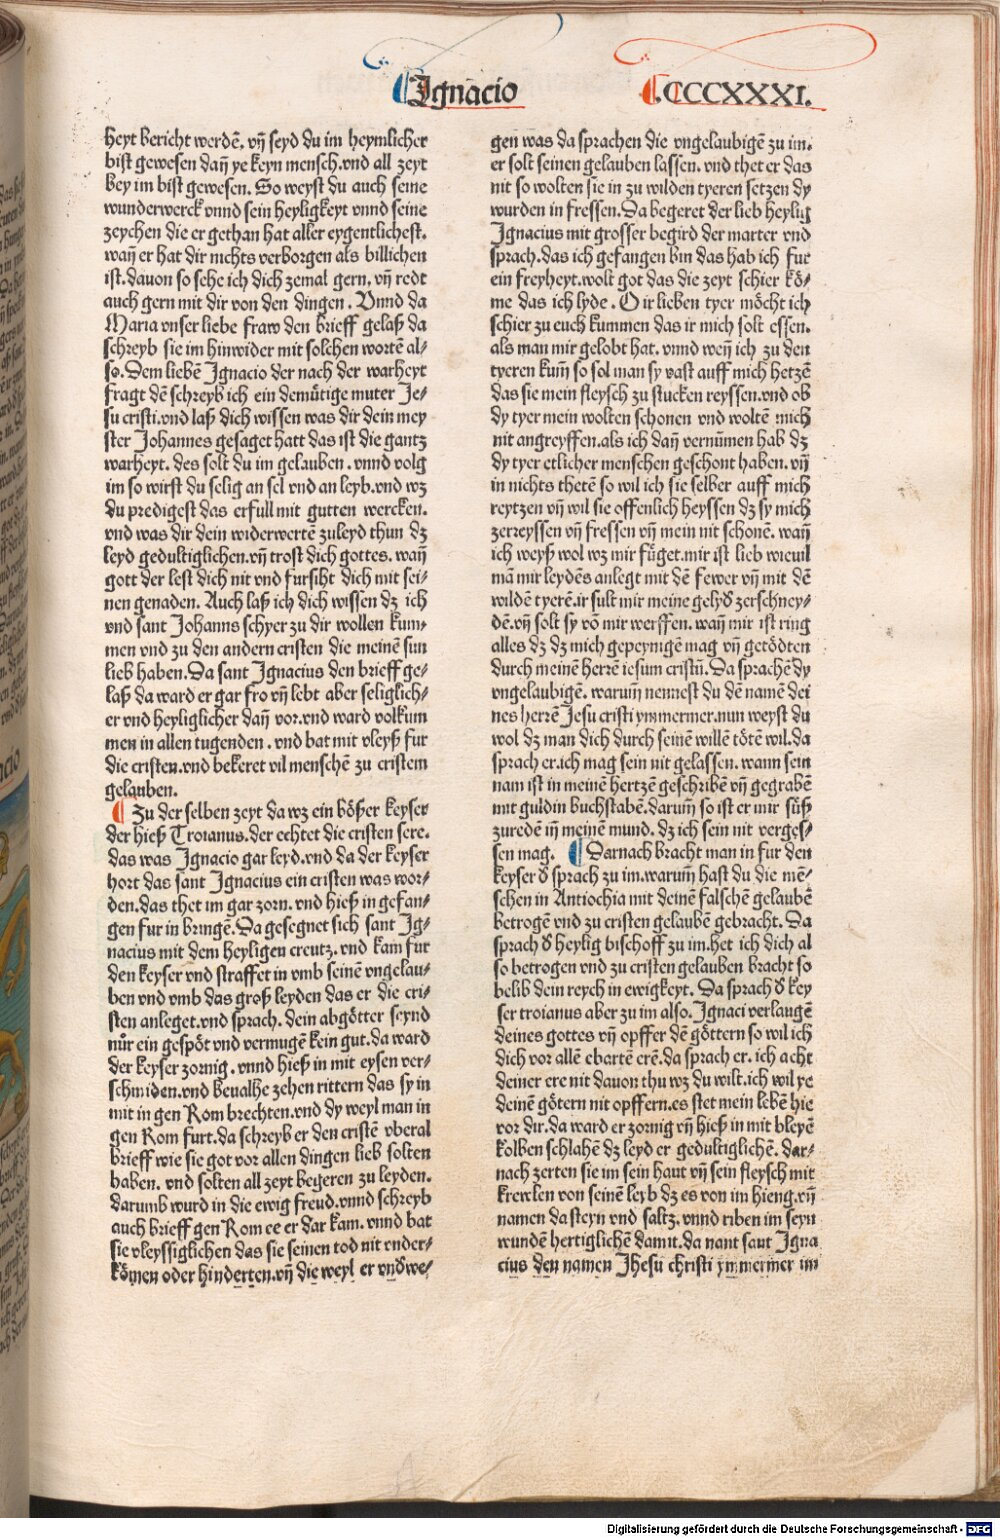 Ignacio
.CCCXXXI.
heyt bericht werdē. vn̄ seyd du im heymlicher
bist gewesen dan̄ ye keyn mensch.vnd all zeyt
bey im bist gewesen. So weyst du auch seine
wunderwerck vnnd sein heyligkeyt vnnd seine
zeychen die er gethan hat aller eygentlichest.
wan̄ er hat dir nichts verborgen als billichen
ist.dauon so sehe ich dich zemal gern. vn̄ redt
auch gern mit dir von den dingen. Vnnd da
Maria vnser liebe fraw den brieff gelaß da
schreyb sie im hinwider mit solchen wortē al⸗
so. Dem liebē Ignacio der nach der warheyt
fragt dē schreyb ich ein demütige muter Je⸗
su cristi.vnd laß dich wissen was dir dein mey
ster Johannes gesaget hatt das ist die gantz
warheyt. des solt du im gelauben. vnnd volg
im so wirst du selig an sel vnd an leyb.vnd wz
du predigest das erfull mit gutten wercken.
vnd was dir dein widerwertē zuleyd thun dz
leyd gedultiglichen.vn̄ trost dich gottes. wan̄
gott der lest dich nit vnd fursiht dich mit sei⸗
nen genaden. Auch laß ich dich wissen dz ich
vnd sant Johanns schyer zu dir wollen kum⸗
men vnd zu den andern cristen die meinē sun
lieb haben. Da sant Ignacius den brieff ge⸗
laß da ward er gar fro vn̄ lebt aber seliglich⸗
er vnd heyliglicher dan̄ vor.vnd ward volkum
men in allen tugenden. vnd bat mit vleyß fur
die cristen.vnd bekeret vil menschē zu cristem
gelauben.
Zu der selben zeyt da wz ein bößer keyser
der hieß Troianus.der echtet die cristen sere.
das was Ignacio gar leyd.vnd da der keyser
hort das sant Ignacius ein cristen was wor⸗
den.das thet im gar zorn. vnd hieß in gefan⸗
gen fur in bringē. Da gesegnet sich sant Ig⸗
nacius mit dem heyligen creutz. vnd kam fur
den keyser vnd straffet in vmb seinē vngelau⸗
ben vnd vmb das groß leyden das er die cri⸗
sten anleget.vnd sprach. dein abgötter seynd
nür ein gespöt vnd vermugē kein gut.da ward
der keyser zornig. vnnd hieß in mit eysen ver⸗
schmiden.vnd beualhe zehen rittern das sy in
mit in gen Rom brechten.vnd dy weyl man in
gen Rom furt.da schreyb er den cristē vberal
brieff wie sie got vor allen dingen lieb solten
haben. vnd solten all zeyt begeren zu leyden.
darumb wurd in die ewig freud.vnnd schreyb
auch brieff gen Rom ee er dar kam. vnnd bat
sie vleyssiglichen das sie seinen tod nit vnder⸗
kömen oder hinderten.vn̄ die weyl er vnd̄we⸗
gen was da sprachen die vngelaubigē zu im.
er solt seinen gelauben lassen. vnd thet er das
nit so wolten sie in zu wilden tyeren setzen dy
wurden in fressen. Da begeret der lieb heylig
Ignacius mit grosser begird der marter vnd
sprach.das ich gefangen bin das hab ich fur
ein freyheyt.wolt got das die zeyt schier kö⸗
me das ich lyde. O ir lieben tyer möcht ich
schier zu euch kummen das ir mich solt essen.
als man mir gelobt hat. vnnd wen̄ ich zu den
tyeren kum̄ so sol man sy vast auff mich hetzē
das sie mein fleysch zu stucken reyssen.vnd ob
dy tyer mein wolten schonen vnd woltē mich
nit angreyffen.als ich dan̄ vernūmen hab dz
dy tyer etlicher menschen geschont haben. vn̄
in nichts thetē so wil ich sie selber auff mich
reytzen vn̄ wil sie offenlich heyssen dz sy mich
zerreyssen vn̄ fressen vn̄ mein nit schonē. wan̄
ich weyß wol wz mir füget.mir ist lieb wieuil
mā mir leydēs anlegt mit dē fewer vn̄ mit dē
wildē tyerē.ir sult mir meine gelyd zerschney⸗
dē.vn̄ solt sy vō mir werffen. wan̄ mir ist ring
alles dz dz mich gepeynigē mag vn̄ getödten
durch meinē herrē iesum cristū. Da sprachē dy
vngelaubigē. warum̄ nennest du dē namē dei
nes herrē Jesu cristi ymmermer.nun weyst du
wol dz man dich durch seinē willē tötē wil.da
sprach er.ich mag sein nit gelassen. wann sein
nam ist in meinē hertzē geschribē vn̄ gegrabē
mit guldin buchstabē.darum̄ so ist er mir süß
zuredē in̄ meinē mund. dz ich sein nit verges⸗
sen mag. Darnach bracht man in fur den
keyser d̄ sprach zu im.warum̄ hast du die mē⸗
schen in Antiochia mit deinē falschē gelaubē
betrogē vnd zu cristen gelaubē gebracht. Da
sprach d̄ heylig bischoff zu im.het ich dich al
so betrogen vnd zu cristen gelauben bracht so
belib dein reych in ewigkeyt. Da sprach d̄ key
ser troianus aber zu im also. Ignaci verlaugē
deines gottes vn̄ opffer dē göttern so wil ich
dich vor allē ebartē erē.da sprach er. ich acht
deiner ere nit dauon thu wz du wilt.ich wil ye
deinē götern nit opffern.es stet mein lebē hie
vor dir.da ward er zornig vn̄ hieß in mit bleyē
kolben schlahē dz leyd er gedultiglichē. dar⸗
nach zerten sie im sein haut vn̄ sein fleysch mit
krewlen von seinē leyb dz es von im hieng.vn̄
namen da steyn vnd saltz. vnnd riben im seyn
wundē hertiglichē damit.da nant sant Igna
cius den namen Jhesu christi ymmermer im
Digitalisierung gefördert durch die Deutsche Forschungsgemeinschaft - DFG